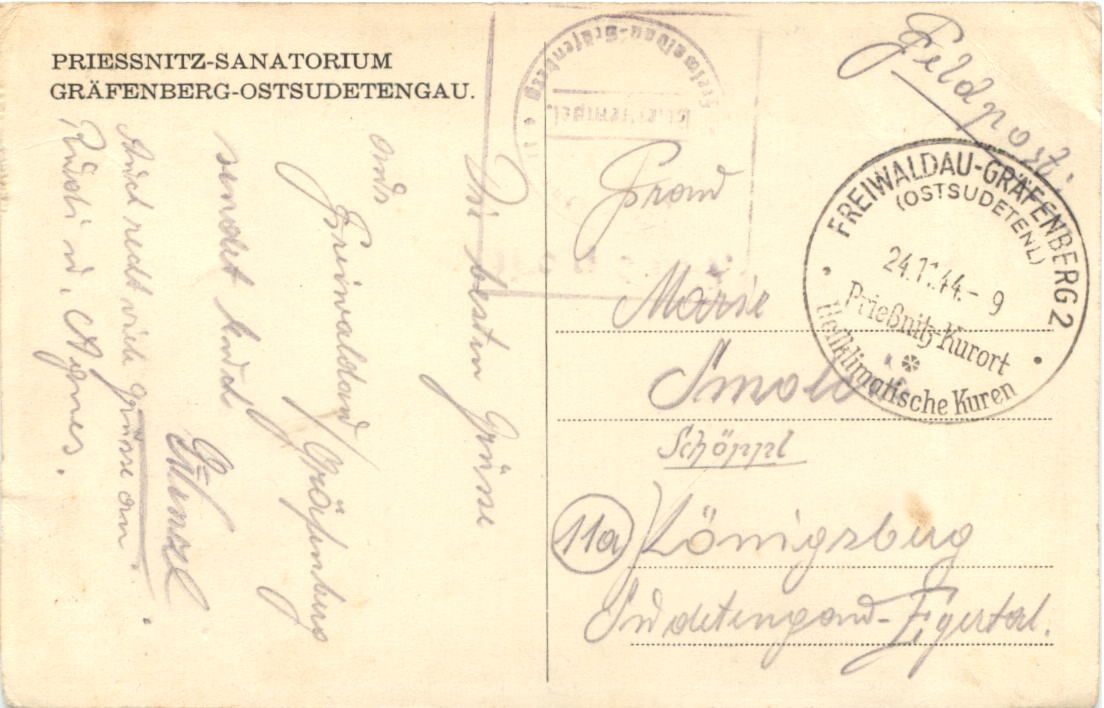 PRIESSNITZ-SANATORIUM
GRÄFENBERG-OSTSUDETENGAU.
Die besten Grüse
aus
Freiwaldau/Gräfenberg
sendet
Auch recht viele grüsse an
Rudi u. Agnes.
Feldpost.
Freiwaldau-Gräfenberg
Briefstempel.
FREIWALDAU-GRÄFENBERG 2
(OSTSUDETENL)
24.11.44.-9
Prießnitz-Kurort
Heilklimatische Kuren
Frau
Marie
Schöppl
11a Königsberg
Sudetengau-Egertal.